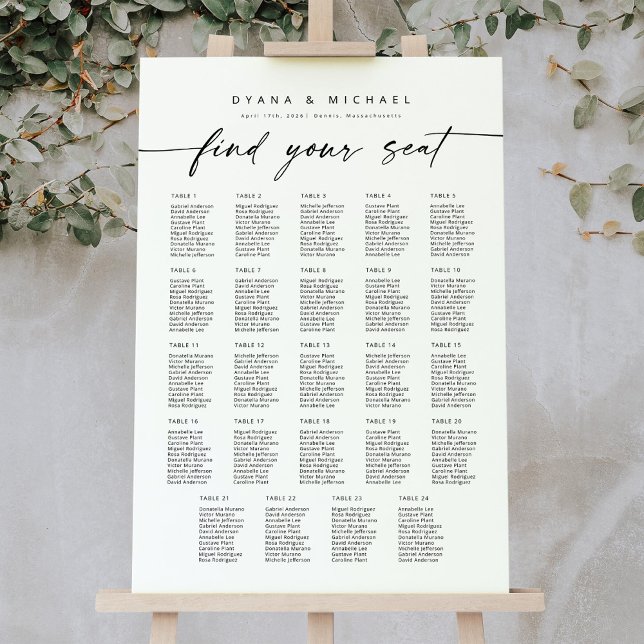 DYANA & MICHAEL
April 17th, 2026| Dennis, Massachusetts
find your seat
TABLE 1
Gabriel Anderson
David Anderson
Annabelle Lee
Gustave Plant
Caroline Plant
Miguel Rodriguez
Rosa Rodriguez
Donatella Murano
Victor Murano
Michelle Jefferson
TABLE 2
Miguel Rodriguez
Rosa Rodriguez
Donatella Murano
Victor Murano
Michelle Jefferson
Gabriel Anderson
David Anderson
Annabelle Lee
Gustave Plant
Caroline Plant
TABLE 3
Michelle Jefferson
Gabriel Anderson
David Anderson
Annabelle Lee
Gustave Plant
Caroline Plant
Miguel Rodriguez
Rosa Rodriguez
Donatella Murano
Victor Murano
TABLE 4
Gustave Plant
Caroline Plant
Miguel Rodriguez
Rosa Rodriguez
Donatella Murano
Victor Murano
Michelle Jefferson
Gabriel Anderson
David Anderson
Annabelle Lee
TABLE 5
Annabelle Lee
Gustave Plant
Caroline Plant
Miguel Rodriguez
Rosa Rodriguez
Donatella Murano
Victor Murano
Michelle Jefferson
Gabriel Anderson
David Anderson
TABLE 6
Gustave Plant
Caroline Plant
Miguel Rodriguez
Rosa Rodriguez
Donatella Murano
Victor Murano
Michelle Jefferson
Gabriel Anderson
David Anderson
Annabelle Lee
TABLE 7
TABLE 8
TABLE 9
Annabelle Lee
Gustave Plant
Caroline Plant
Miguel Rodriguez
Rosa Rodriguez
Donatella Murano
Victor Murano
Michelle Jefferson
Gabriel Anderson
David Anderson
TABLE 10
Donatella Murano
Victor Murano
Michelle Jefferson
Gabriel Anderson
David Anderson
Annabelle Lee
Gustave Plant
Caroline Plant
Miguel Rodriguez
Rosa Rodriguez
TABLE 11
Donatella Murano
Victor Murano
Michelle Jefferson
Gabriel Anderson
David Anderson
Annabelle Lee
Gustave Plant
Caroline Plant
Miguel Rodriguez
Rosa Rodriguez
TABLE 12
Michelle Jefferson
Gabriel Anderson
David Anderson
Annabelle Lee
Gustave Plant
Caroline Plant
Miguel Rodriguez
Rosa Rodriguez
Donatella Murano
Victor Murano
TABLE 13
TABLE 14
TABLE 15
TABLE 16
Annabelle Lee
Gustave Plant
Caroline Plant
Miguel Rodriguez
Rosa Rodriguez
Donatella Murano
Victor Murano
Michelle Jefferson
Gabriel Anderson
David Anderson
TABLE 17
Miguel Rodriguez
Rosa Rodriguez
Donatella Murano
Victor Murano
Michelle Jefferson
Gabriel Anderson
David Anderson
Annabelle Lee
Gustave Plant
Caroline Plant
TABLE 18
Gabriel Anderson
David Anderson
Annabelle Lee
Gustave Plant
Caroline Plant
Miguel Rodriguez
Rosa Rodriguez
Donatella Murano
Victor Murano
Michelle Jefferson
TABLE 19
Gustave Plant
Caroline Plant
Miguel Rodriguez
Rosa Rodriguez
Donatella Murano
Victor Murano
Michelle Jefferson
Gabriel Anderson
David Anderson
Annabelle Lee
TABLE 20
Donatella Murano
Victor Murano
Michelle Jefferson
Gabriel Anderson
David Anderson
Annabelle Lee
Gustave Plant
Caroline Plant
Miguel Rodriguez
Rosa Rodriguez
TABLE 21
Donatella Murano
Victor Murano
Michelle Jefferson
Gabriel Anderson
David Anderson
Annabelle Lee
Gustave Plant
Caroline Plant
Miguel Rodriguez
Rosa Rodriguez
TABLE 22
Gabriel Anderson
David Anderson
Annabelle Lee
Gustave Plant
Caroline Plant
Miguel Rodriguez
Rosa Rodriguez
Donatella Murano
Victor Murano
Michelle Jefferson
TABLE 23
Miguel Rodriguez
Rosa Rodriguez
Donatella Murano
Victor Murano
Michelle Jefferson
Gabriel Anderson
David Anderson
Annabelle Lee
Gustave Plant
Caroline Plant
TABLE 24
Annabelle Lee
Gustave Plant
Caroline Plant
Miguel Rodriguez
Rosa Rodriguez
Donatella Murano
Victor Murano
Michelle Jefferson
Gabriel Anderson
David Anderson